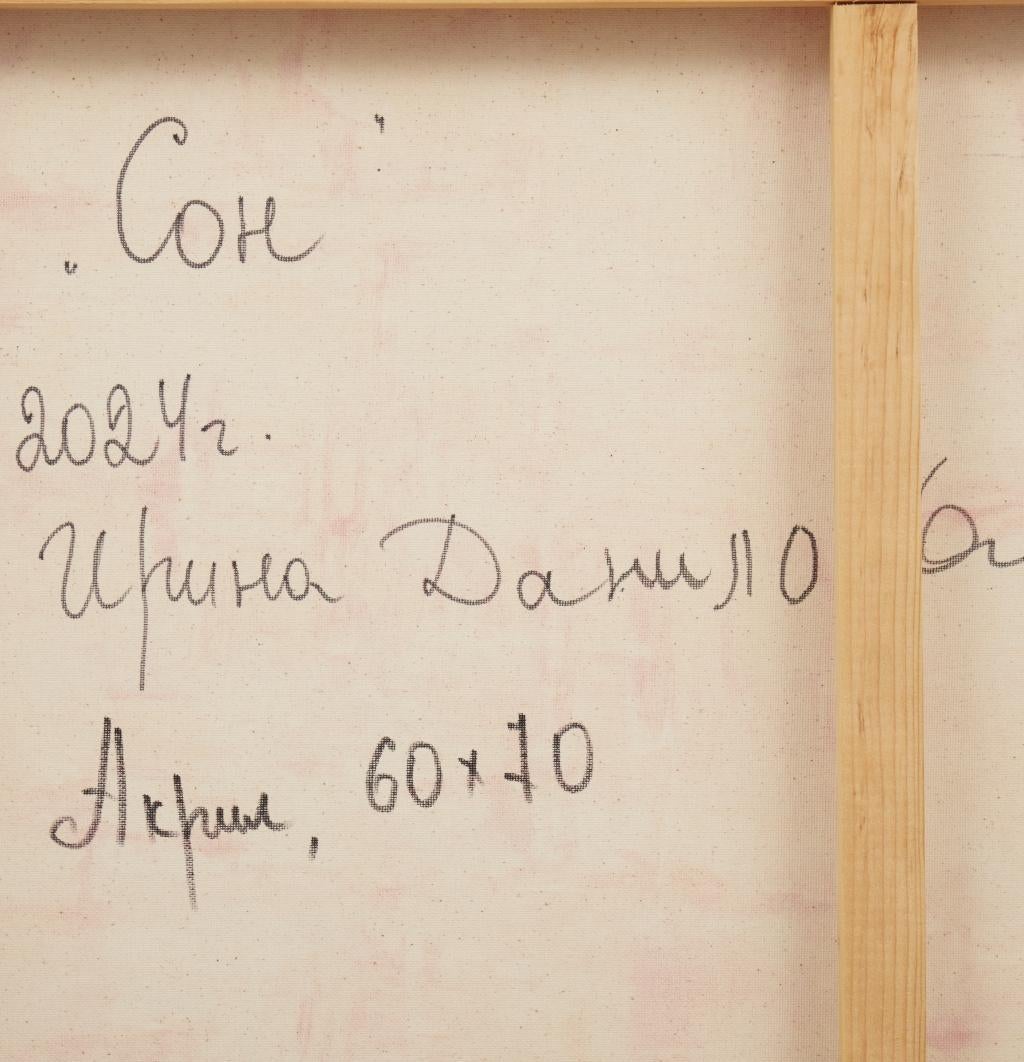 „Сон"
2024г.
Ирина Данилова
Акрил, 60x70